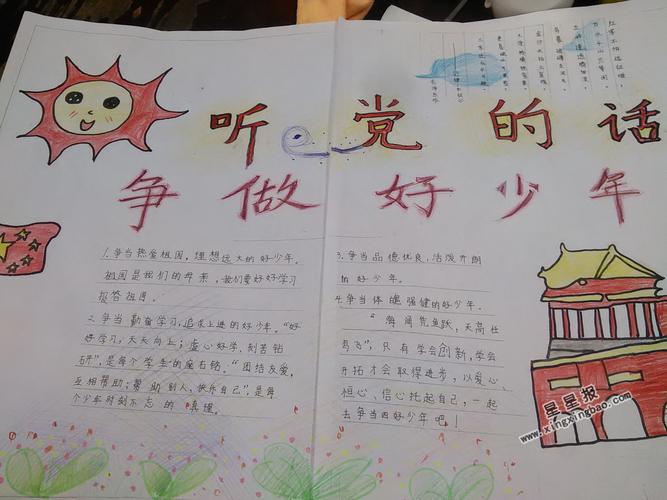 红军不怕远征难，
万水千山只等闲。
听党的话
争做好少年
1.争当热爱祖国，理想远大的好少年。
祖国是我们的母亲，我们要好好学习
报答祖国。
2.争当勤奋学习，追求上进的好少年。“好
好学习，天天向上；虚心好学，刻苦钻
研”，是每个学生的座右铭，“团结友爱，
互相帮助；帮助别人，快乐自己”，是每
个少年时刻不忘的真理。
3.争当品德优良，活泼开朗
的好少年。
4.争当体魄强健的好少年。
“海阔凭鱼跃，天高任
鸟飞”，只有学会创新，学会
开拓才会取得进步，以爱心、
恒心、信心托起自己，一起
去争当四好少年吧！
星星报
www.xingxingbao.com